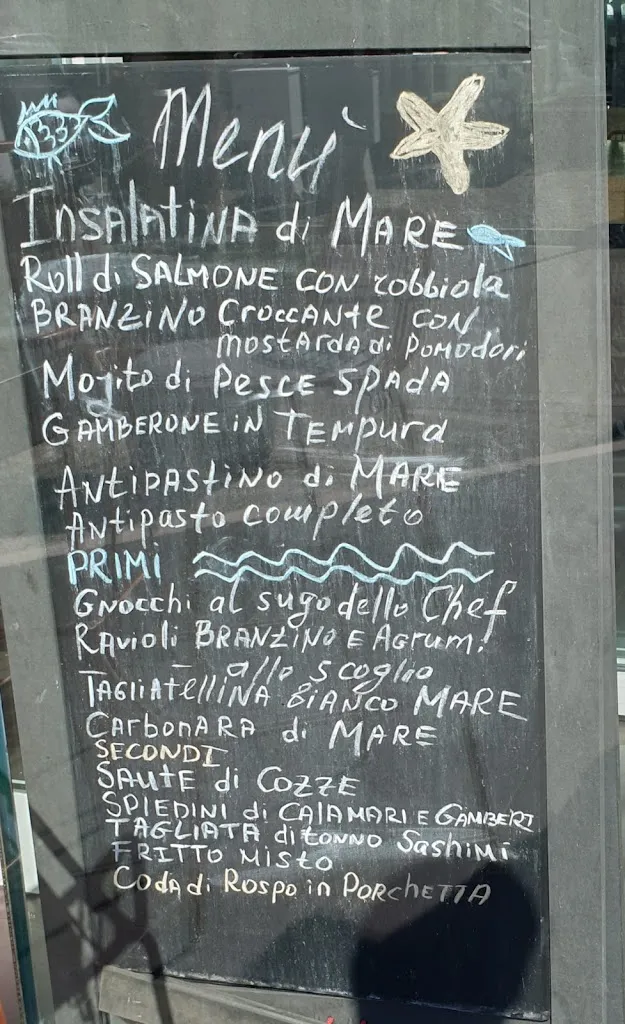 Menù
INSALATINA di MARE
Roll di SALMONE CON robbiola
BRANZINO CroccANte CON
mostarda di Pomodori
Mojito di PESCE SPADA
GAMBERONE iN TEmpura
ANtiPAStiNO di MARE
ANtipasto completo
PRIMI
GNocchi al sugo dello Chef
RAvioli BRANZINO E Agrumi
allo scoglio
TAGliAtelliNA BiANCO MARE
CARboNARA di MARE
SECONDI
SAUtE di COZZE
SPIEDINI di CAlAMARI E GAMBERI
TAGLIATA di tonno Sashimi
FRITTO Misto
Coda di Rospo in PORChETTA